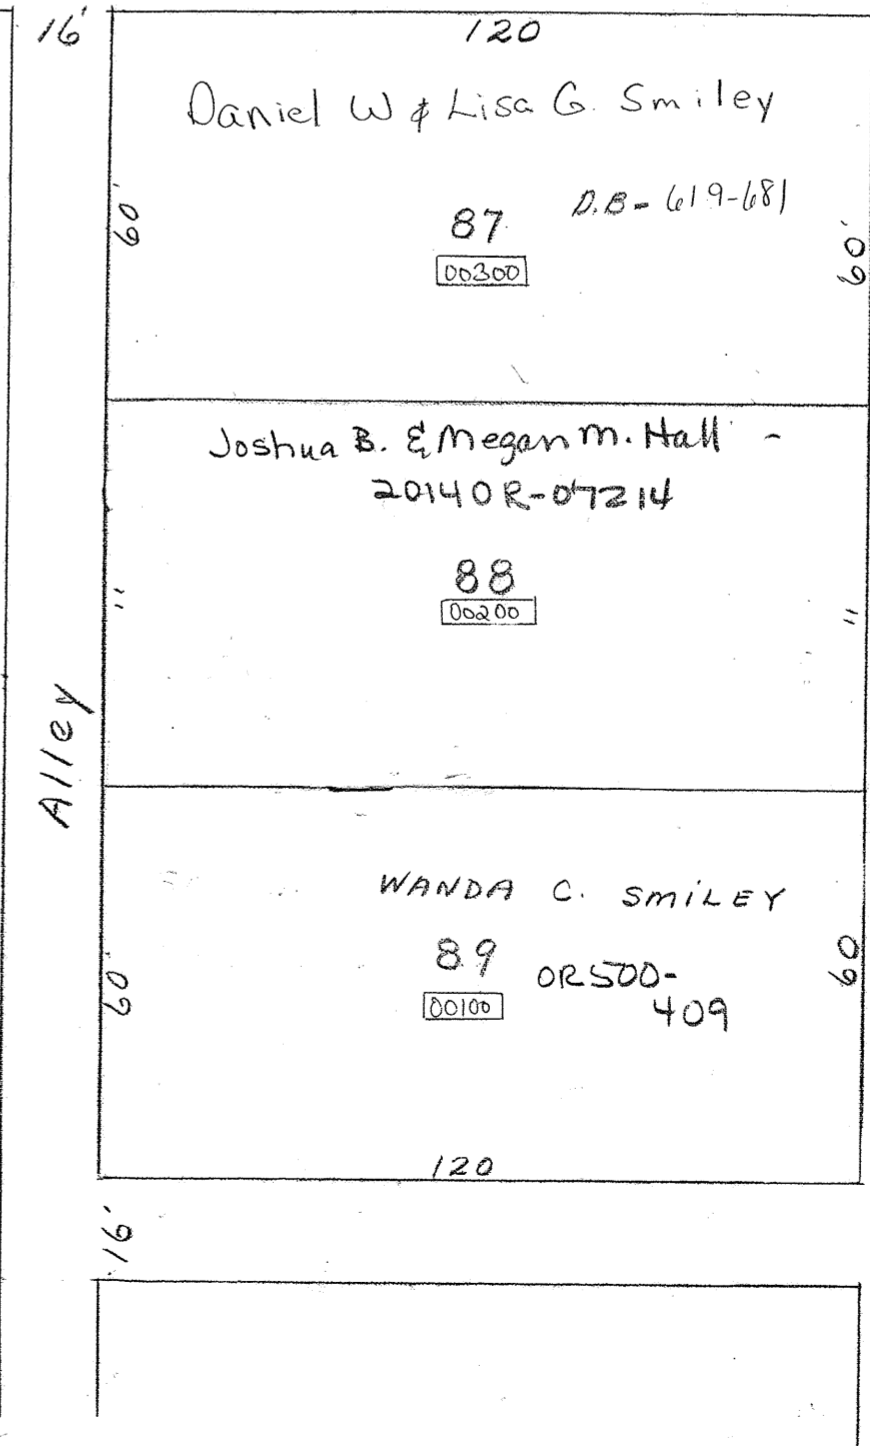 16'
120
Daniel W & Lisa G. Smiley
60'
87
D.B- 619-681
60'
00300
Joshua B. & Megan M. Hall -
2014OR-07214
88
00200
"
"
Alley
WANDA C. SMiLEY
89
OR500-
409
00100
60'
60
120
16'